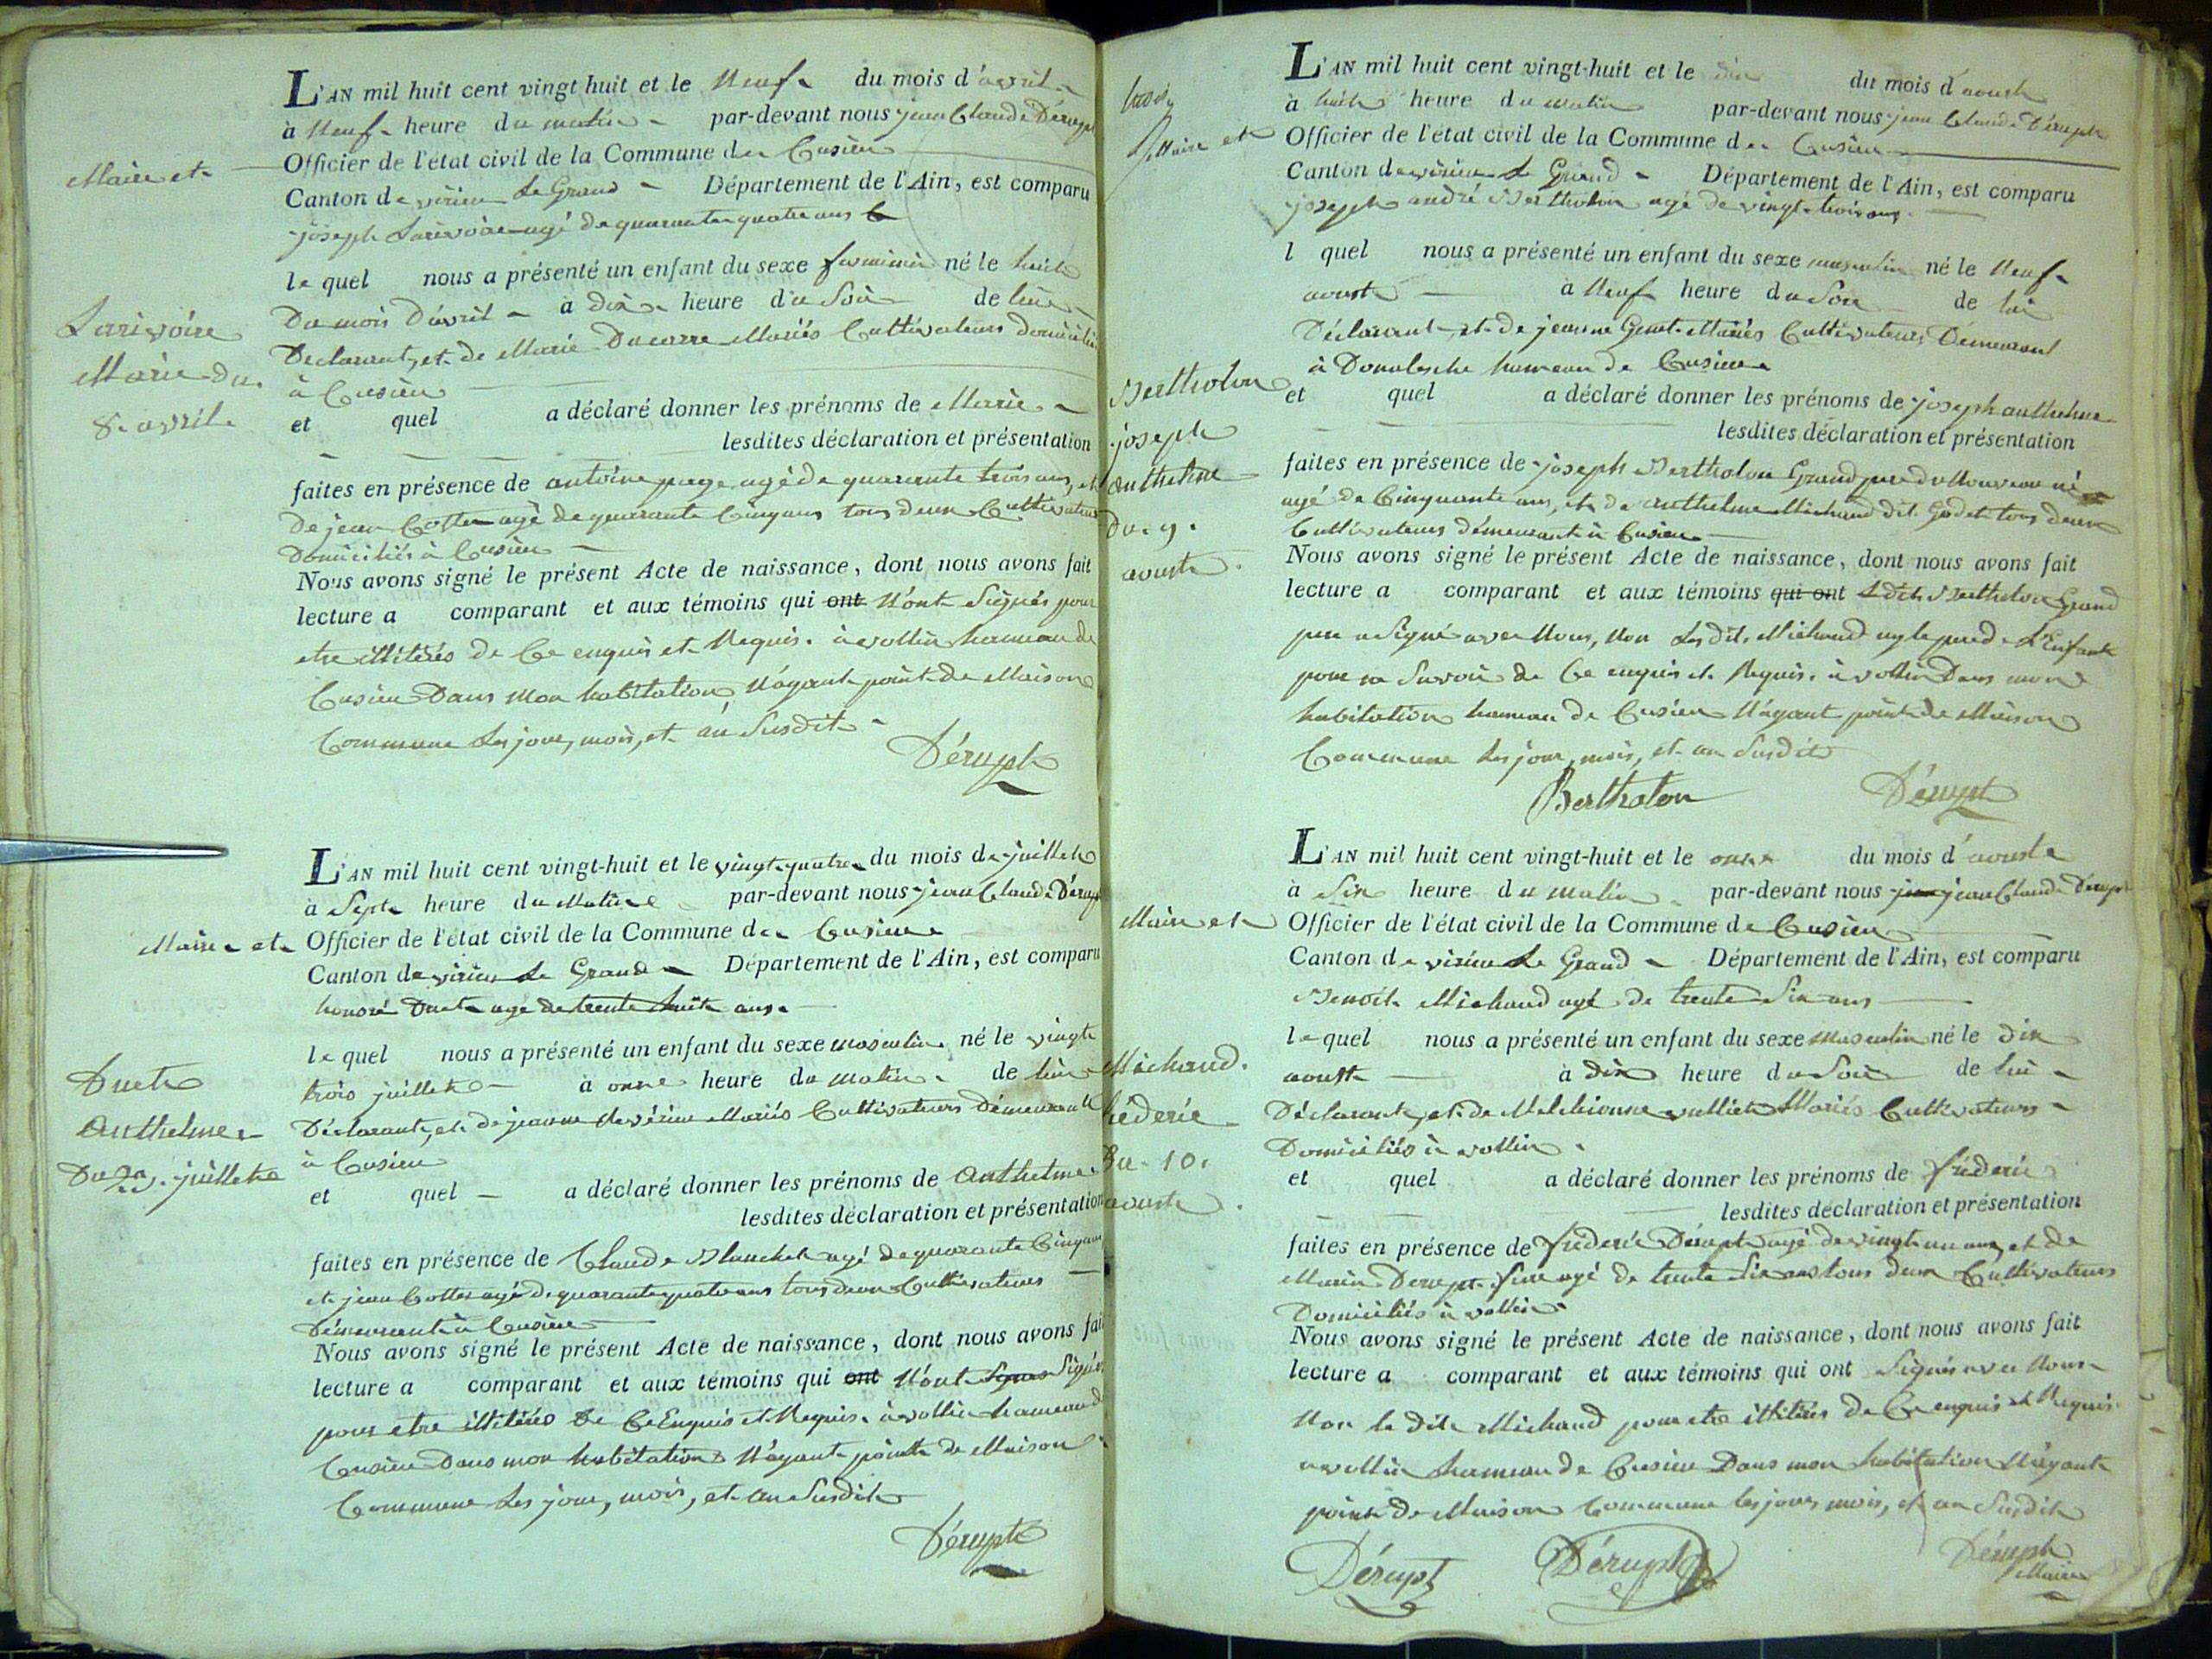 L'AN mil huit cent vingt huit et le Neuf du mois d'avril
à Neuf heure du matin par-devant nous jean Claude Dérupt
Maire et Officier de l'état civil de la Commune de Cusieu
Canton de virieu Le Grand Département de l'Ain, est comparu
joseph Larivoire agé de quarante quatre ans
le quel nous a présenté un enfant du sexe feminin né le huit
Du mois D'avril à dix heure du Soir de lui
Declarant, et de Marie Ducarre Mariés Cultivateurs domiciliés
à Cusieu
Larivoire
Marie du
8. avril
et quel a déclaré donner les prénoms de Marie
lesdites déclaration et présentation
faites en présence de antoine page agé de quarante trois ans, et
De jean Cottin agé de quarante Cinq ans tous deux Cultivateurs
Domiciliés à Cusieu
Nous avons signé le présent Acte de naissance, dont nous avons fait
lecture a comparant et aux témoins qui ont N'ont Signés pour
etre illitérés de Ce enquis et Requis. à vollin hameau de
Cusieu Dans Mon habitation N'ayant point de Maison
Commune Les jour, mois, et an Susdit
Dérupt
L'AN mil huit cent vingt-huit et le vingt quatre du mois de juillet
à Sept heure du Matin par-devant nous jean Claude Dérupt
Maire et Officier de l'état civil de la Commune de Cusieu
Canton de virieu Le Grand Département de l'Ain, est comparu
honoré Duet agé de trente huit ans
le quel nous a présenté un enfant du sexe masculin né le vingt
trois juillet à onze heure du matin de lui
Déclarant, et de jeanne Mariés Cultivateurs Démeurant
à Cusieu
Duet
Anthelme
Du 23. juillet
et quel a déclaré donner les prénoms de Anthelme
lesdites déclaration et présentation
faites en présence de Claude Blanchet agé de quarante Cinq ans
et jean Cottin agé de quarante quatre ans tous deux Cultivateurs
Démeurant à Cusieu
Nous avons signé le présent Acte de naissance, dont nous avons fait
lecture a comparant et aux témoins qui ont N'ont Signés Signés
pour etre illitérés De Ce Enquis et Requis. à vollin hameau de
Cusieu Dans mon habitation N'ayant point de Maison
Commune Les jour, mois, et an Susdit
Dérupt
L'AN mil huit cent vingt-huit et le dix du mois d'aoust
à huit heure du matin par-devant nous jean Claude Dérupt
Maire et Officier de l'état civil de la Commune de Cusieu
Canton de virieu Le Grand Département de l'Ain, est comparu
joseph andré Bertholon agé de vingt trois ans
l quel nous a présenté un enfant du sexe masculin né le Neuf
aoust à Neuf heure du Soir de lui
Déclarant, et de jeanne Mariés Cultivateurs Démeurant
à hameau de Cusieu
Bertholon
joseph
anthelme
Du. 9.
aoust
et quel a déclaré donner les prénoms de joseph anthelme
lesdites déclaration et présentation
faites en présence de joseph Bertholon Grand pere du Nouveau né
agé de Cinquante ans, et de anthelme Michaud dit Godet tous deux
Cultivateurs démeurant à Cusieu
Nous avons signé le présent Acte de naissance, dont nous avons fait
lecture a comparant et aux témoins qui ont Ledit Bertholon Grand
pere a Signé avec Nous, Non Les dit. Michaud ny le pere de L'Enfant
pour ne Savoir de Ce enquis et Requis. à vollin Dans mon
habitation hameau de Cusieu N'ayant point de Maison
Commune Les jour, mois, et an Susdit
Bertholon Dérupt
L'AN mil huit cent vingt-huit et le onze du mois d'aoust
à Six heure du matin par-devant nous jean jean Claude Dérupt
Maire et Officier de l'état civil de la Commune de Cusieu
Canton de virieu Le Grand Département de l'Ain, est comparu
Benoit Michaud agé de trente Six ans
le quel nous a présenté un enfant du sexe Masculin né le Dix
aoust à dix heure du Soir de lui
Déclarant, et de Melchionne Mariés Cultivateurs
Domiciliés à vollin
Michaud.
fréderic
Du. 10.
aoust
et quel a déclaré donner les prénoms de fréderic
lesdites déclaration et présentation
faites en présence de fréderic Dérupt agé de vingt un ans, et de
Marin Derupt agé de trente Six ans tous deux Cultivateurs
Domiciliés à vollin
Nous avons signé le présent Acte de naissance, dont nous avons fait
lecture a comparant et aux témoins qui ont Signés avec Nous
Non le dit Michaud pour etre illitérés de Ce enquis et Requis
a vollin hameau de Cusieu Dans mon habitation N'ayant
point de Maison Commune les jour, mois, et an Susdit
Dérupt Dérupt Dérupt
Maire